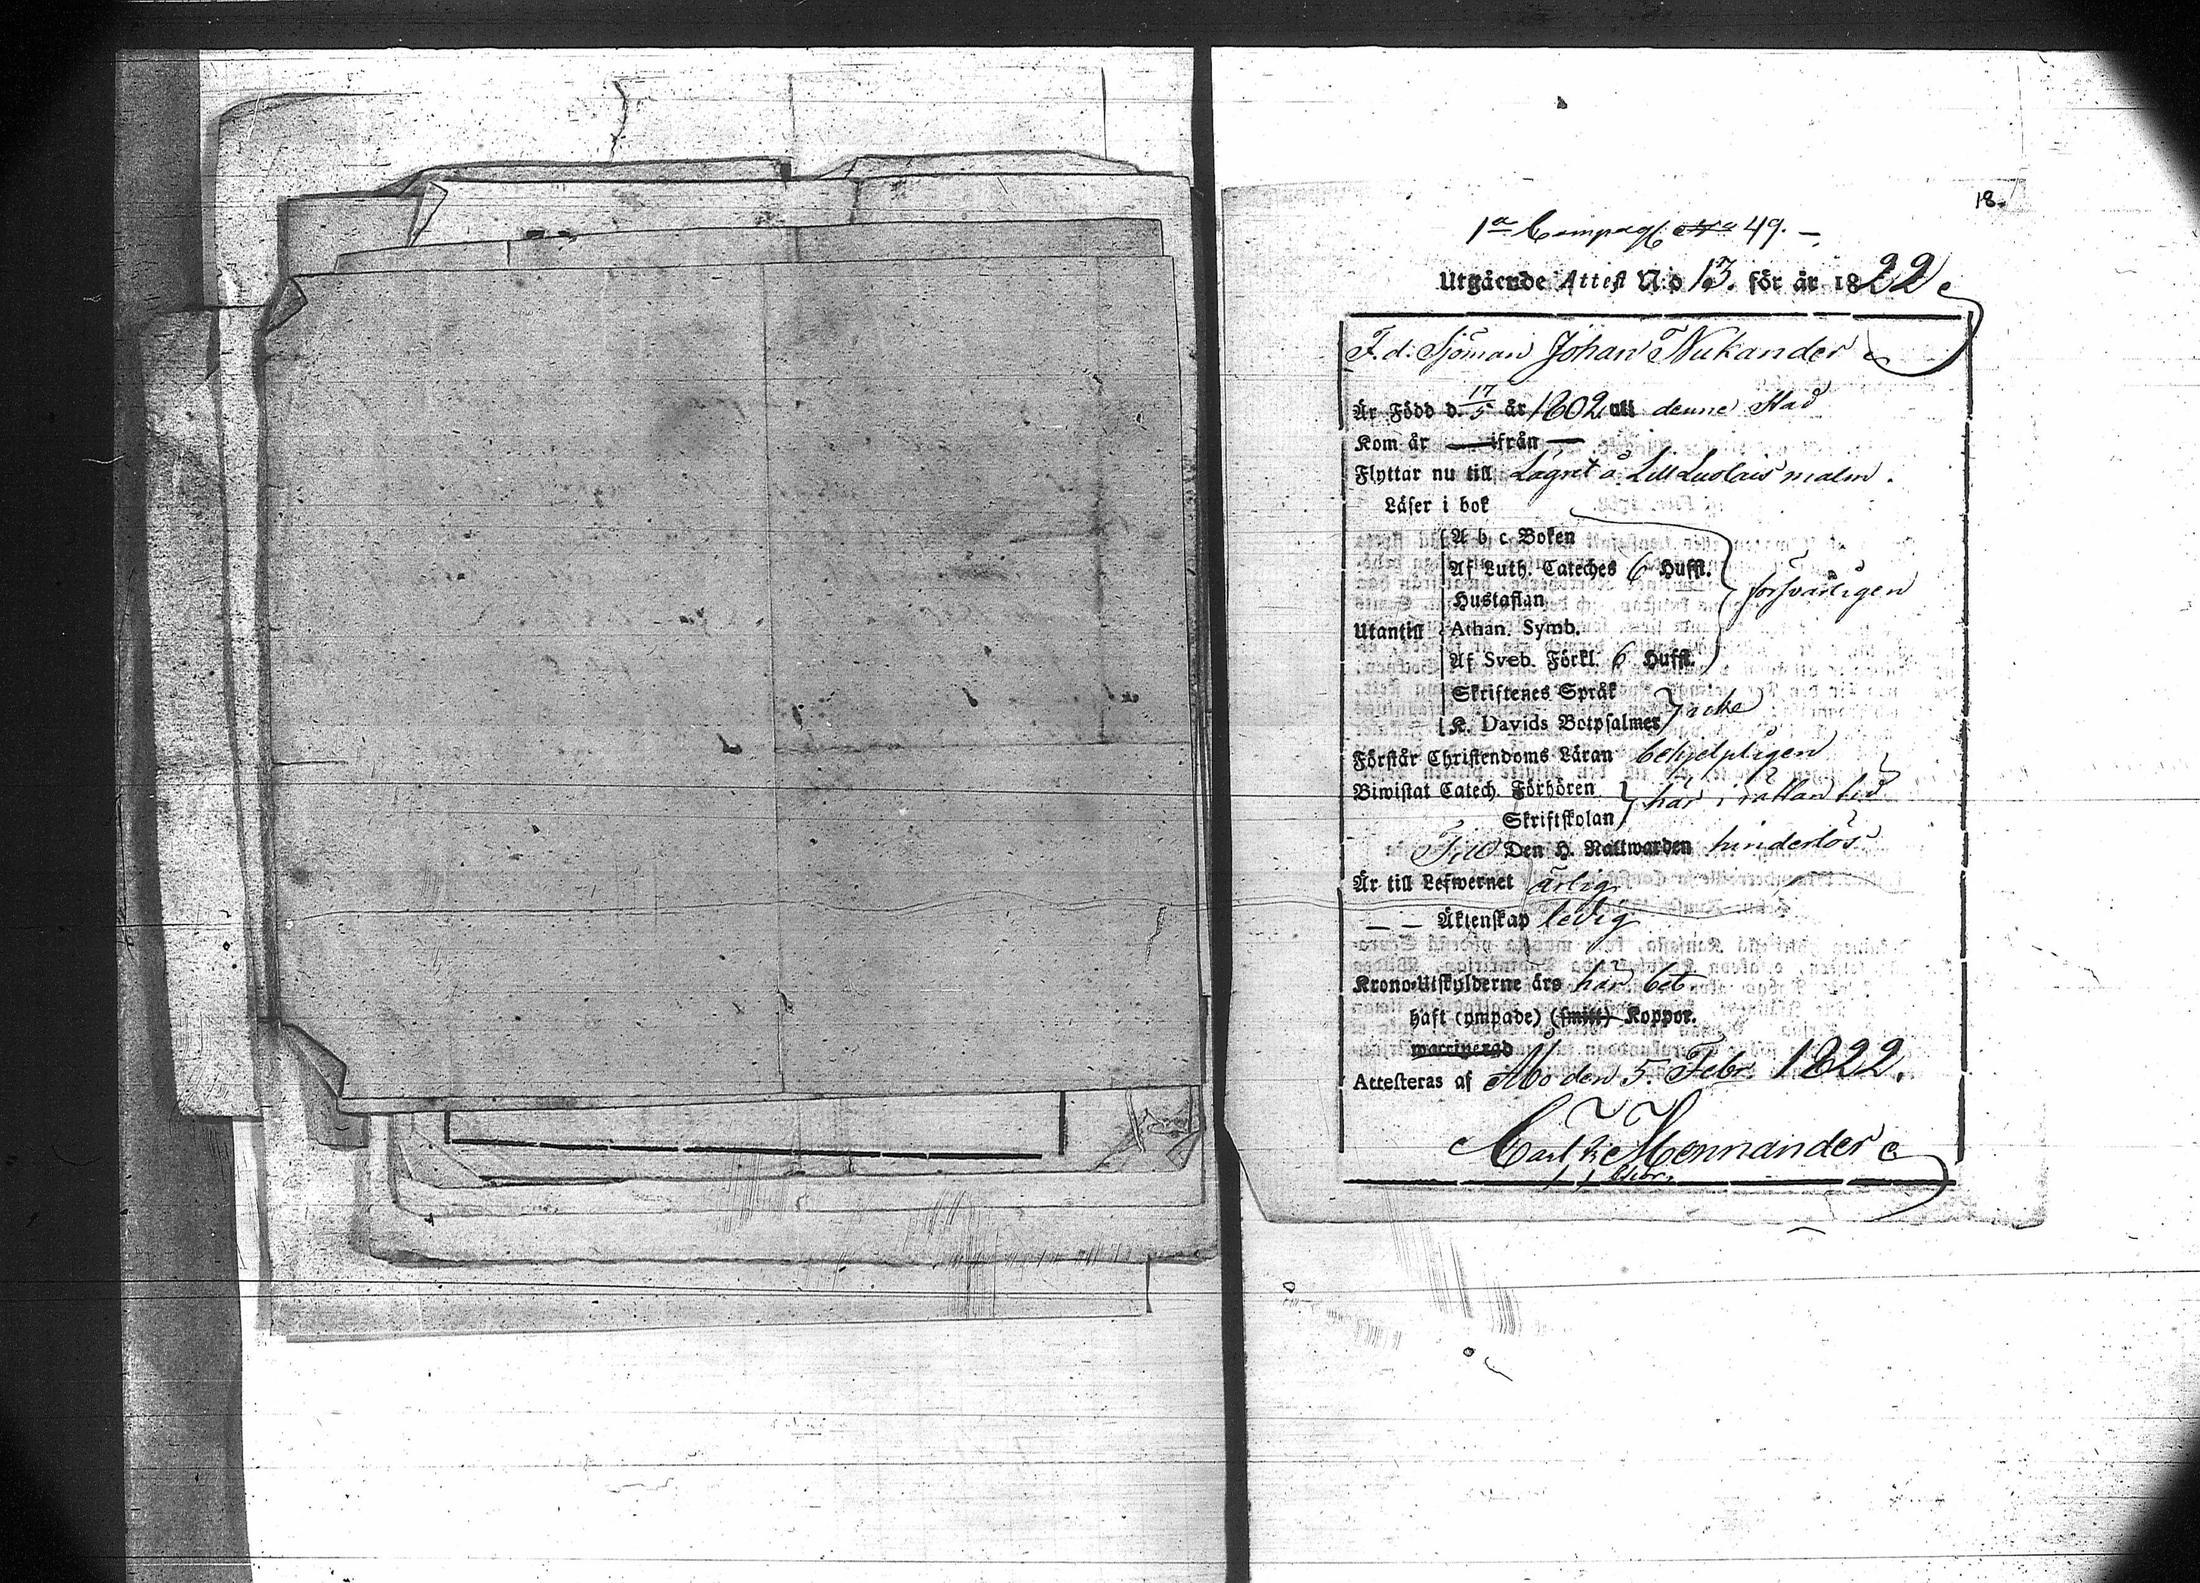 18.
1a Compagn: No 49. —
Utgående Attest N:o 13. för år 1822.
F. d. Sjöman Johan Nukander
Är Född d. 17/5 år 1802 uti denne Stad
Kom år — ifrån —
Flyttar nu till Lägret å Lill Luolais malm.
Läser i bok
A b c Boken
Af Luth. Cateches 6 Hufst.
Hustaflan
försvarligen
Utantill Athan. Symb.
Af Sveb. Förkl. 6 Hufst.
Skriftenes Språk
K. Davids Botpsalmer icke
Förstår Christendoms Läran behjelpligen
Biwistat Catech. Förhören
här i rättan tid
Skriftskolan
Den H. Nattwarden hinderlös
Är till Lefwernet ärlig
— — Äktenskap ledig
Krono-Utskylderne äro här bet.
haft (ympade) (smitt) Koppor.
waccinerad
Attesteras af Åbo den 5. Febr. 1822.
Carl R. Mennander